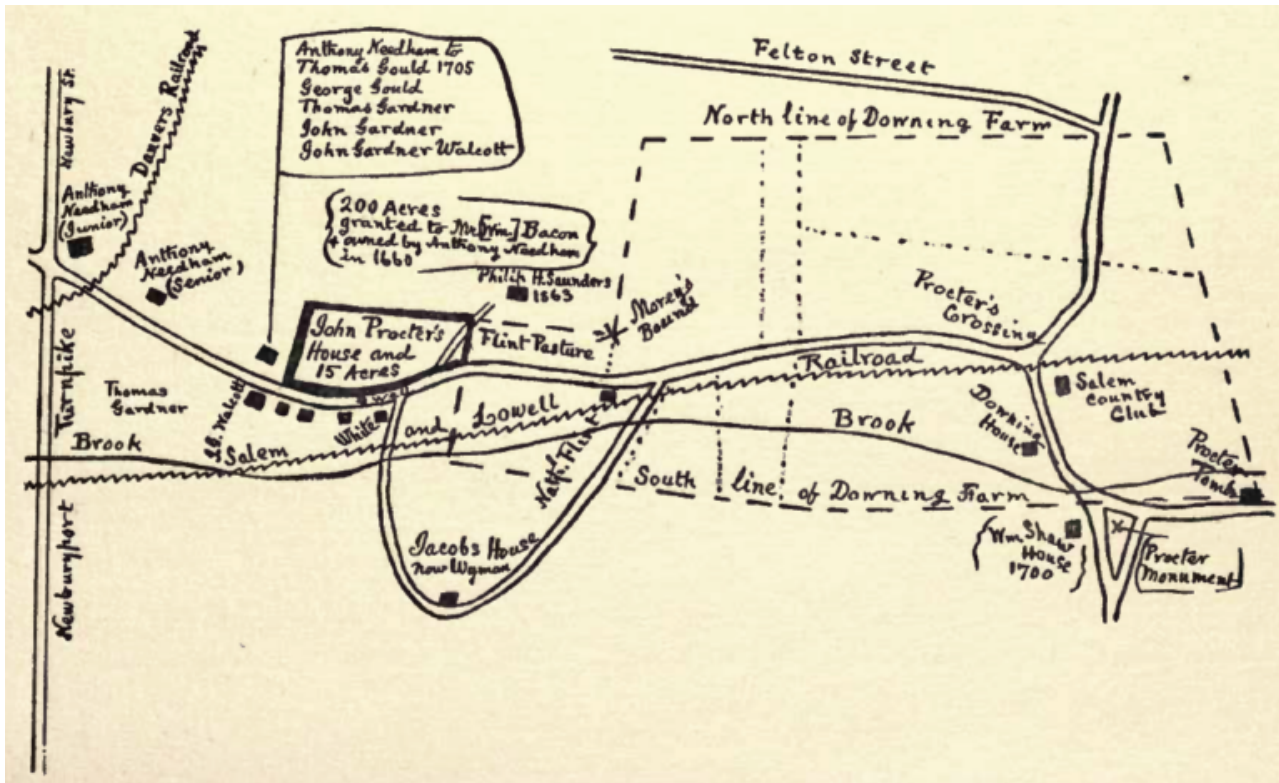 Newbury St.
Danvers Railroad
Anthony Needham to
Thomas Gould 1705
George Gould
Thomas Gardner
John Gardner
John Gardner Walcott
Felton Street
North line of Downing Farm
Anthony
Needham
(Junior)
Anthony
Needham
(Senior)
200 Acres
granted to Mr. [Wm.] Bacon
+ owned by Anthony Needham
in 1660
Philip H. Saunders
1863
Morey's
Bound
Procter's
Crossing
John Procter's
House and
15 Acres
Flint Pasture
Railroad
Turnpike
Thomas
Gardner
Walcott
White
Salem
and
Lowell
Nath. Flint
Brook
Brook
Downing
House
Salem
Country
Club
Procter
Tomb
South line of Downing Farm
Jacobs House
now Wyman
(Wm Shaw
House
1700)
Procter
Monument
Newburyport